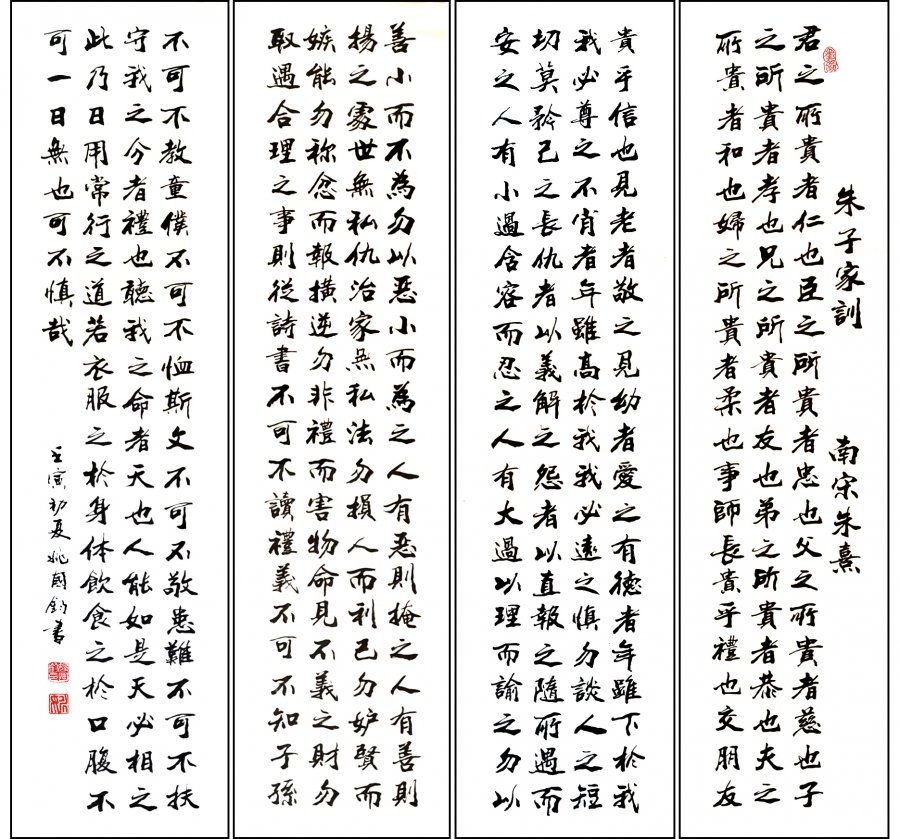 朱子家訓 南宋朱熹
君之所貴者仁也臣之所貴者忠也父之所貴者慈也子
之所貴者孝也兄之所貴者友也弟之所貴者恭也夫之
所貴者和也婦之所貴者柔也事師長貴乎禮也交朋友
貴乎信也見老者敬之見幼者愛之有德者年雖下於我
我必尊之不肖者年雖高於我我必遠之慎勿談人之短
切莫矜己之長仇者以義解之怨者以直報之隨所遇而
安之人有小過含容而忍之人有大過以理而諭之勿以
善小而不為勿以惡小而為之人有惡則掩之人有善則
揚之處世無私仇治家無私法勿損人而利己勿妒賢而
嫉能勿称忿而報橫逆勿非禮而害物命見不義之財勿
取遇合理之事則從詩書不可不讀禮義不可不知子孫
不可不教童僕不可不恤斯文不可不敬患難不可不扶
守我之分者禮也聽我之命者天也人能如是天必相之
此乃日用常行之道若衣服之於身体飲食之於口腹不
可一日無也可不慎哉
壬寅初夏姚國書